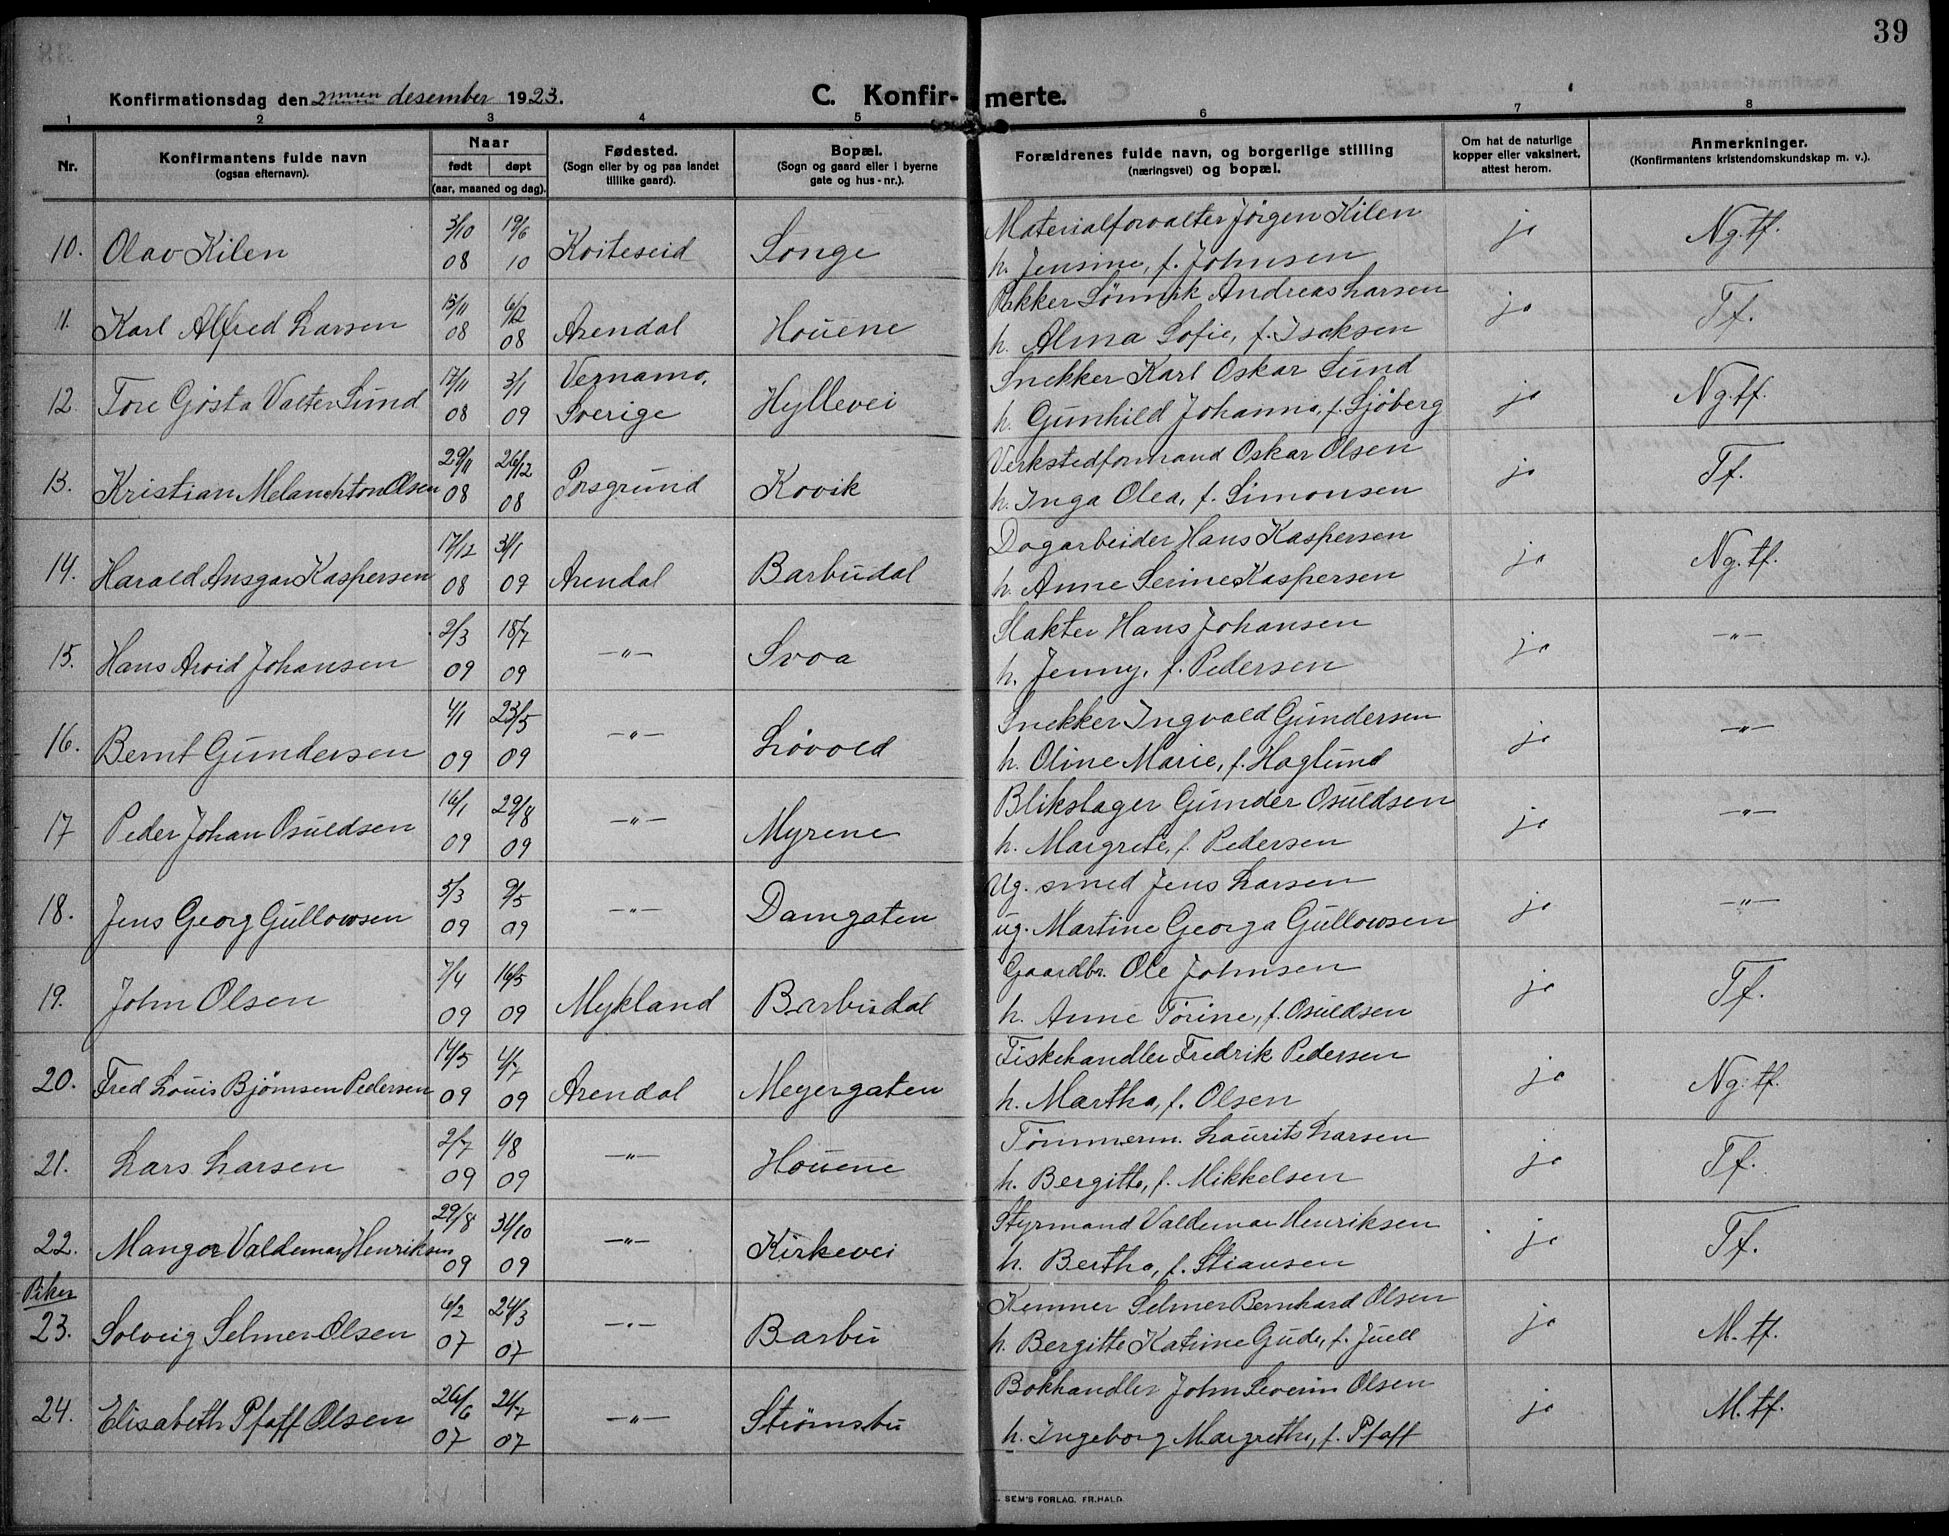 39
Konfirmationsdag den 2 desember 1923.
C. Konfir- merte.
1 2 3 4 5 6 7 8
Nr.
Konfirmantens fulde navn
(ogsaa efternavn).
Naar
født døpt
(aar, maaned og dag).
Fødested.
(Sogn eller by og paa landet
tillike gaard).
Bopæl.
(Sogn og gaard eller i byerne
gate og hus-nr.).
Forældrenes fulde navn, og borgerlige stilling
(næringsvei) og bopæl.
Om hat de naturlige
kopper eller vaksinert,
attest herom.
Anmerkninger.
(Konfirmantens kristendomskundskap m. v.).
3/10 19/6 Materialforvalter Jørgen Kilen
10. Olav Kilen 08 10 Kviteseid Songe h. Jensine, f. Johnsen ja Ng. tf.
13/11 6/12 Andreas Larsen
11. Karl Alfred Larsen 08 08 Arendal Houene h. Alma Sofie, f. Isaksen ja Tf.
17/11 3/1 Vernamo, Snekker Karl Oskar Sund
12 Tore Gösta Valter Sund 08 09 Sverige Hyllevei h. Gunhild Johanna, f. Sjöberg ja Ng. tf.
29/11 26/12 Verkstedformand Oskar Olsen
13. Kristian Melanchton Olsen 08 08 Porsgrund Kovik h. Inga Olea, f. Simonsen ja Tf.
17/12 31/1 Dagarbeider Hans Kaspersen
14. Harald Ansgar Kaspersen 08 09 Arendal Barbudal h. Anne Serine Kaspersen ja Ng. tf.
2/3 18/7 Slakter Hans Johansen
15. Hans Arvid Johansen 09 09 —"— Svoa h. Jenny, f. Pedersen ja —"—
4/1 23/5 Snekker Ingvald Gundersen
16. Bernt Gundersen 09 09 —"— Løvold h. Oline Marie, f. Haglund ja —"—
16/1 29/8 Blikslager Gunder Osuldsen
17 Peder Johan Osuldsen 09 09 —"— Myrene h. Margrete, f. Pedersen ja —"—
5/3 9/5 Ug. smed Jens Larsen
18. Jens Georg Gullowsen 09 09 —"— Damgaten ug. Martine Georga Gullowsen ja —"—
7/4 16/5 Gaardbr. Ole Johnsen
19. John Olsen 09 09 Mykland Barbudal h. Anne Torine, f. Osuldsen ja Tf.
14/5 4/7 Fiskehandler Fredrik Pedersen
20. Fred Louis Bjørnsen Pedersen 09 09 Arendal Meyergaten h. Martha, f. Olsen ja Ng. tf.
2/7 1/8 Tømmerm. Laurits Larsen
21. Lars Larsen 09 09 —"— Houene h. Bergitte, f. Mikkelsen ja Tf.
29/8 31/10 Styrmand Valdemar Henriksen
22. Mangor Valdemar Henriksen 09 09 —"— Kirkevei h. Bertha, f. Stiansen ja Tf.
Piker
6/2 24/3 Kemner Selmer Bernhard Olsen
23. Solveig Selmer Olsen 07 07 —"— Barbu h. Bergitte Katrine Gude, f. Juell ja M. tf.
26/6 21/7 Bokhandler John Severin Olsen
24. Elisabeth Pfaff Olsen 07 07 —"— Strømsbu h. Ingeborg Margrethe, f. Pfaff ja M. tf.
SEM'S FORLAG. FR.HALD